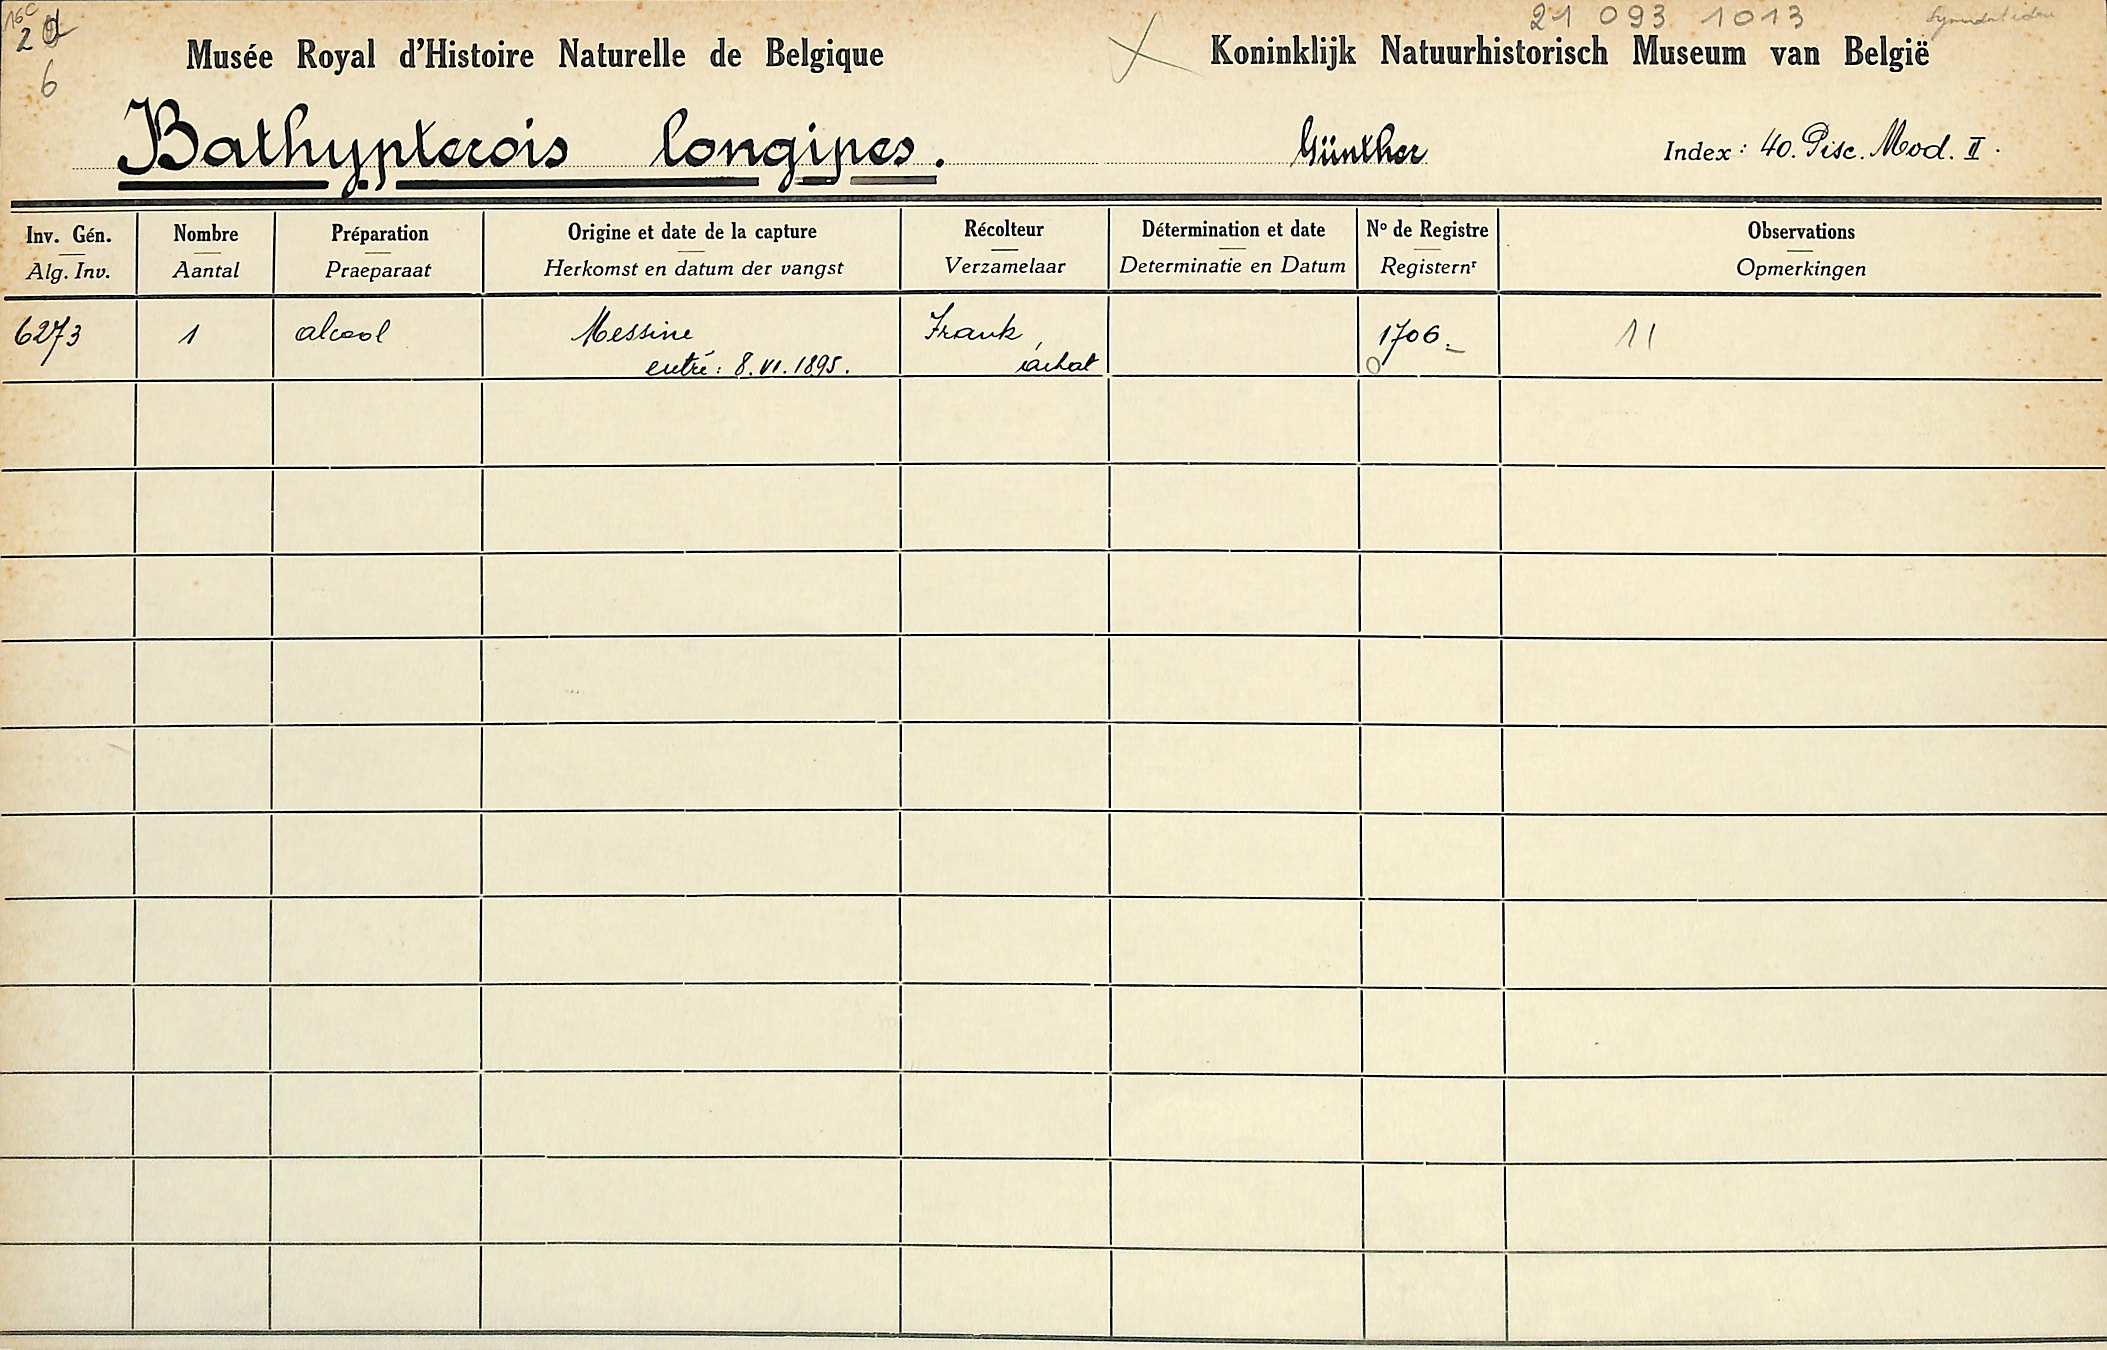 16C
2
6
21 093 1013
Musée Royal d'Histoire Naturelle de Belgique
Koninklijk Natuurhistorisch Museum van België
Bathypterois longipes. Günther Index: 40. Pisc. Mod. II.
Inv. Gén. Nombre Préparation Origine et date de la capture Récolteur Détermination et date Nº de Registre Observations
Alg. Inv. Aantal Praeparaat Herkomst en datum der vangst Verzamelaar Determinatie en Datum Registernʳ Opmerkingen
6273 1 alcool Messine Frank, 1706_ 11
entré: 8.VI.1895. achat